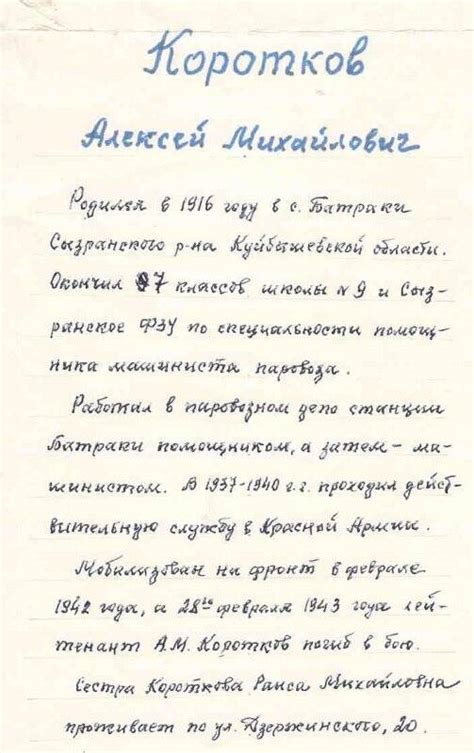 Коротков
Алексей Михайлович
Родился в 1916 году в с. Батраки
Сызранского р-на Куйбышевской области.
Окончил 7 классов школы N9 и Сыз-
ранское ФЗУ по специальности помощ-
ника машиниста паровоза.
Работал в паровозном депо станции
Батраки помощником, а затем - ма-
шинистом. В 1937-1940 г.г. проходил дейст-
вительную службу в Красной Армии.
Мобилизован на фронт в феврале
1942 года, а 28го февраля 1943 года лей-
тенант А.М. Коротков погиб в бою.
Сестра Короткова Раиса Михайловна
проживает по ул. Дзержинского, 20.